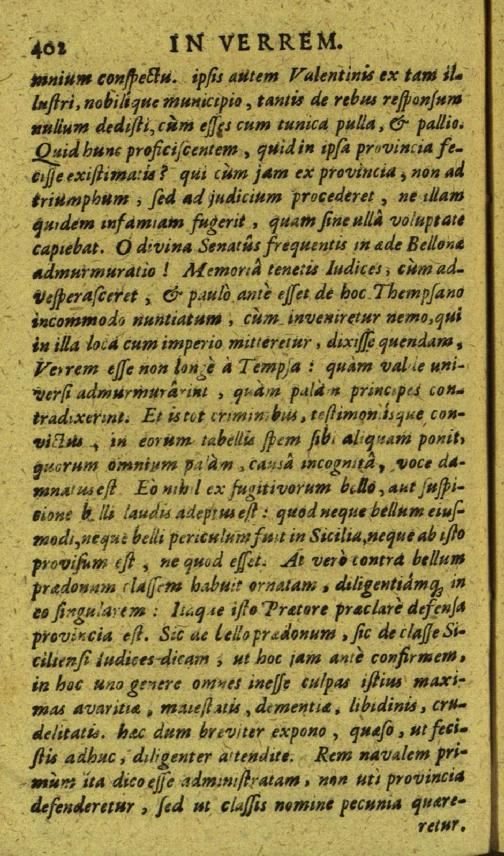 402 IN VERREM.
mnium conspectu. ipsis autem Valentinis ex tam il-
lustri, nobilique municipio, tantis de rebus responsum
nullum dedisti, cùm essęs cum tunica pulla, & pallio.
Quid hunc proficiscentem, quid in ipsa provincia fe-
cisse existimatis? qui cùm jam ex provincia, non ad
triumphum, sed ad judicium procederet, ne illam
quidem infamiam fugerit, quam sine ullâ voluptate
capiebat. O divina Senatûs frequentis in æde Bellonæ
admurmuratio! Memoriâ tenetis Iudices, cùm ad-
vesperasceret, & paulò antè esset de hoc Thempsano
incommodo nuntiatum, cùm inveniretur nemo, qui
in illa loca cum imperio mitteretur, dixisse quendam,
Verrem esse non longè à Tempsa: quàm valde uni-
versi admurmurârint, quàm palàm principes con-
tradixerint. Et is tot criminibus, testimoniisque con-
victus, in eorum tabellis spem sibi aliquam ponit,
quorum omnium palàm, causâ incognitâ, voce da-
mnatus est. Eo nihil ex fugitivorum bello, aut suspi-
cione belli laudis adeptus est: quod neque bellum eius-
modi, neque belli periculum fuit in Sicilia, neque ab isto
provisum est, ne quod esset. At verò contrà bellum
prædonum classem habuit ornatam, diligentiámq; in
eo singularem: Itaque isto Prætore præclarè defensa
provincia est. Sic de bello prædonum, sic de classe Si-
ciliensi Iudices dicam, ut hoc jam antè confirmem,
in hoc uno genere omnes inesse culpas istius maxi-
mas avaritiæ, maiestatis, dementiæ, libidinis, cru-
delitatis. hæc dum breviter expono, quæso, ut feci-
stis adhuc, diligenter attendite. Rem navalem pri-
mùm ita dico esse administratam, non uti provincia
defenderetur, sed ut classis nomine pecunia quære-
retur.